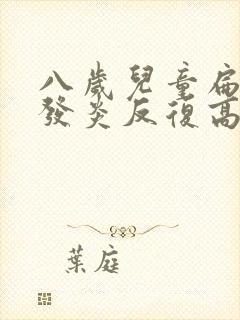 八歲兒童扁
發炎反復高
葉庭